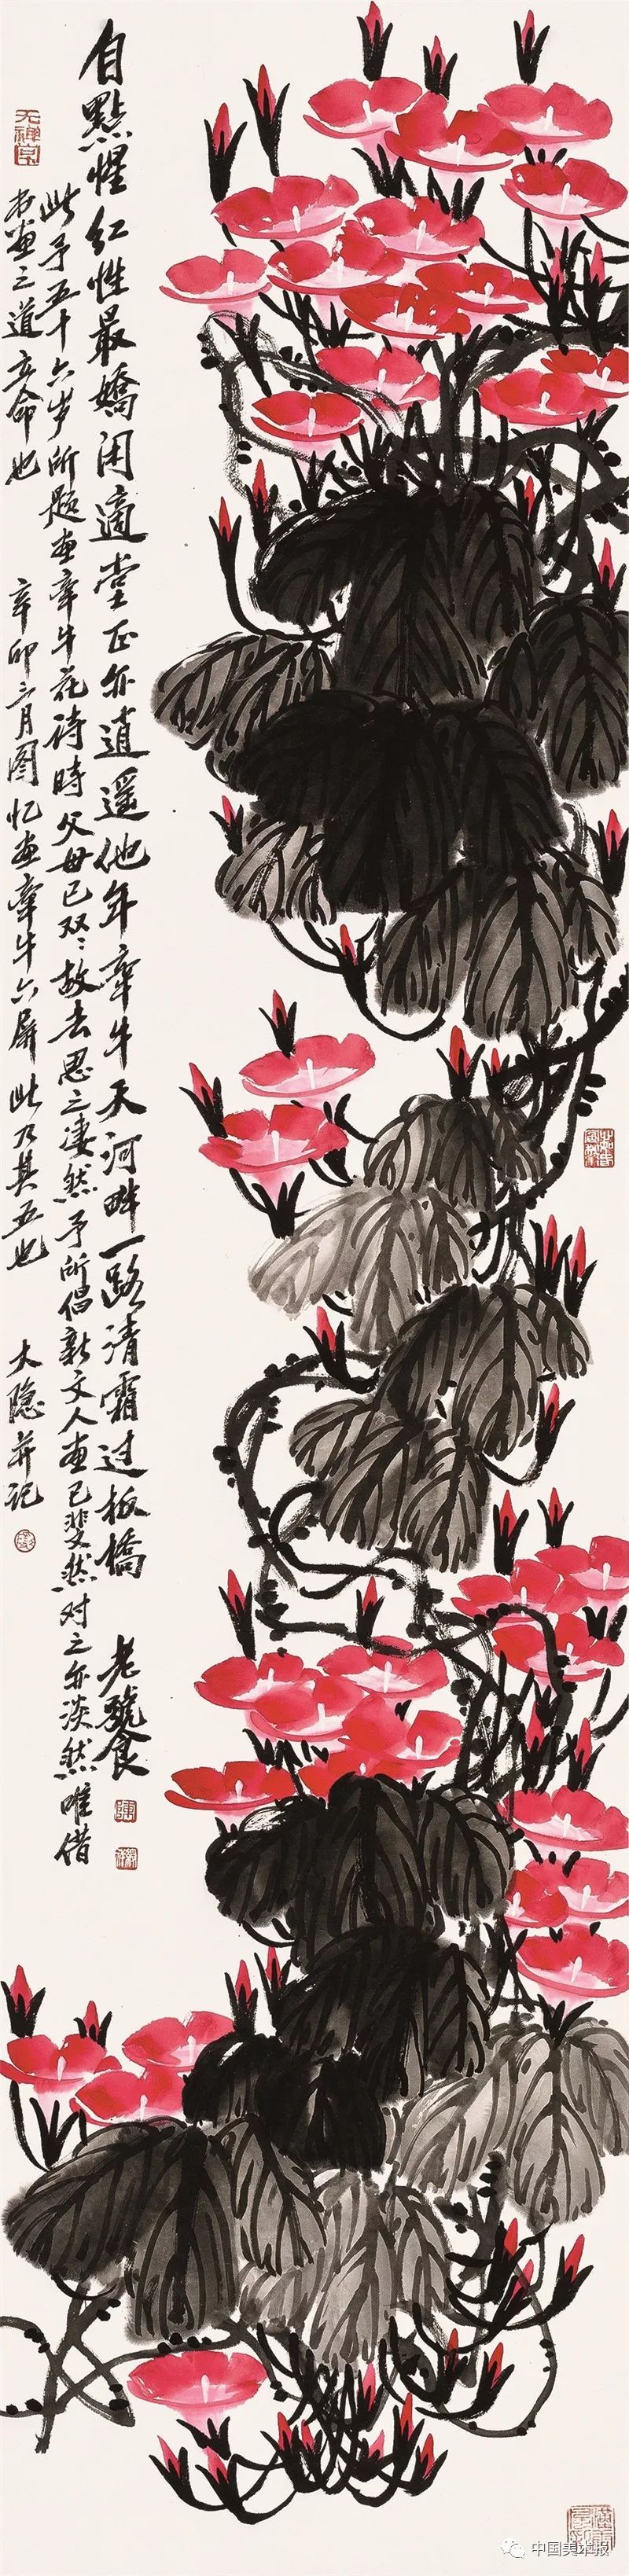 自點猩红性最嬌闲適堂正亦逍遥他年牽牛天河畔一路清霜过板橋 老饕
此予五十六岁所题画牽牛花诗時父母已双双故去思之凄然予所倡新文人画已斐然对之亦淡然唯借
书画之道立命也 辛卯三月图忆画牽牛六屏此乃其五也 大隐并记
中国美术报